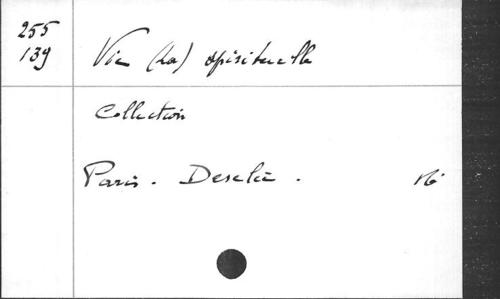 255
139
Vie (La) spirituelle
Collection
Paris. Desclée.